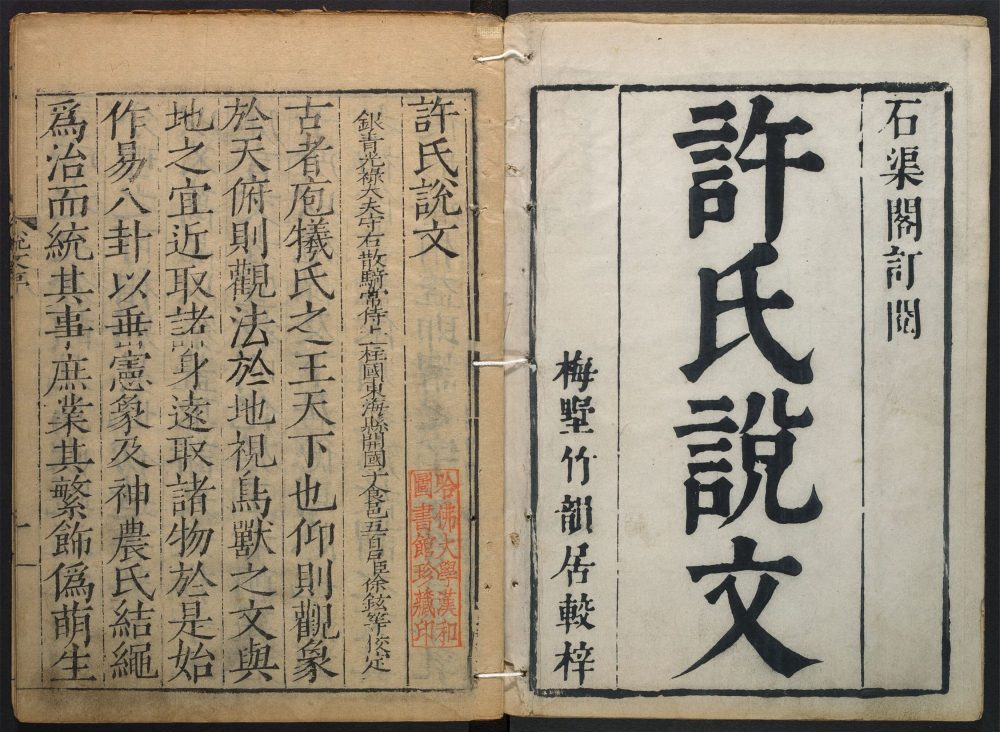 石渠閣訂閱
許氏說文
梅墅竹韻居較梓
許氏說文
銀青光祿大夫守右散騎常侍上柱國東海縣開國子食邑五百戶臣徐鉉等校定
古者庖犧氏之王天下也仰則觀象
於天俯則觀法於地視鳥獸之文與
地之宜近取諸身遠取諸物於是始
作易八卦以垂憲象及神農氏結繩
爲治而統其事庶業其繁飾僞萌生
哈佛大學漢和
圖書館珍藏印